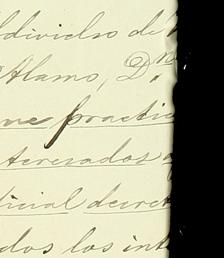 ldivielso de
Alamo, D.n
me practic
teresados
icial decret
dos los int